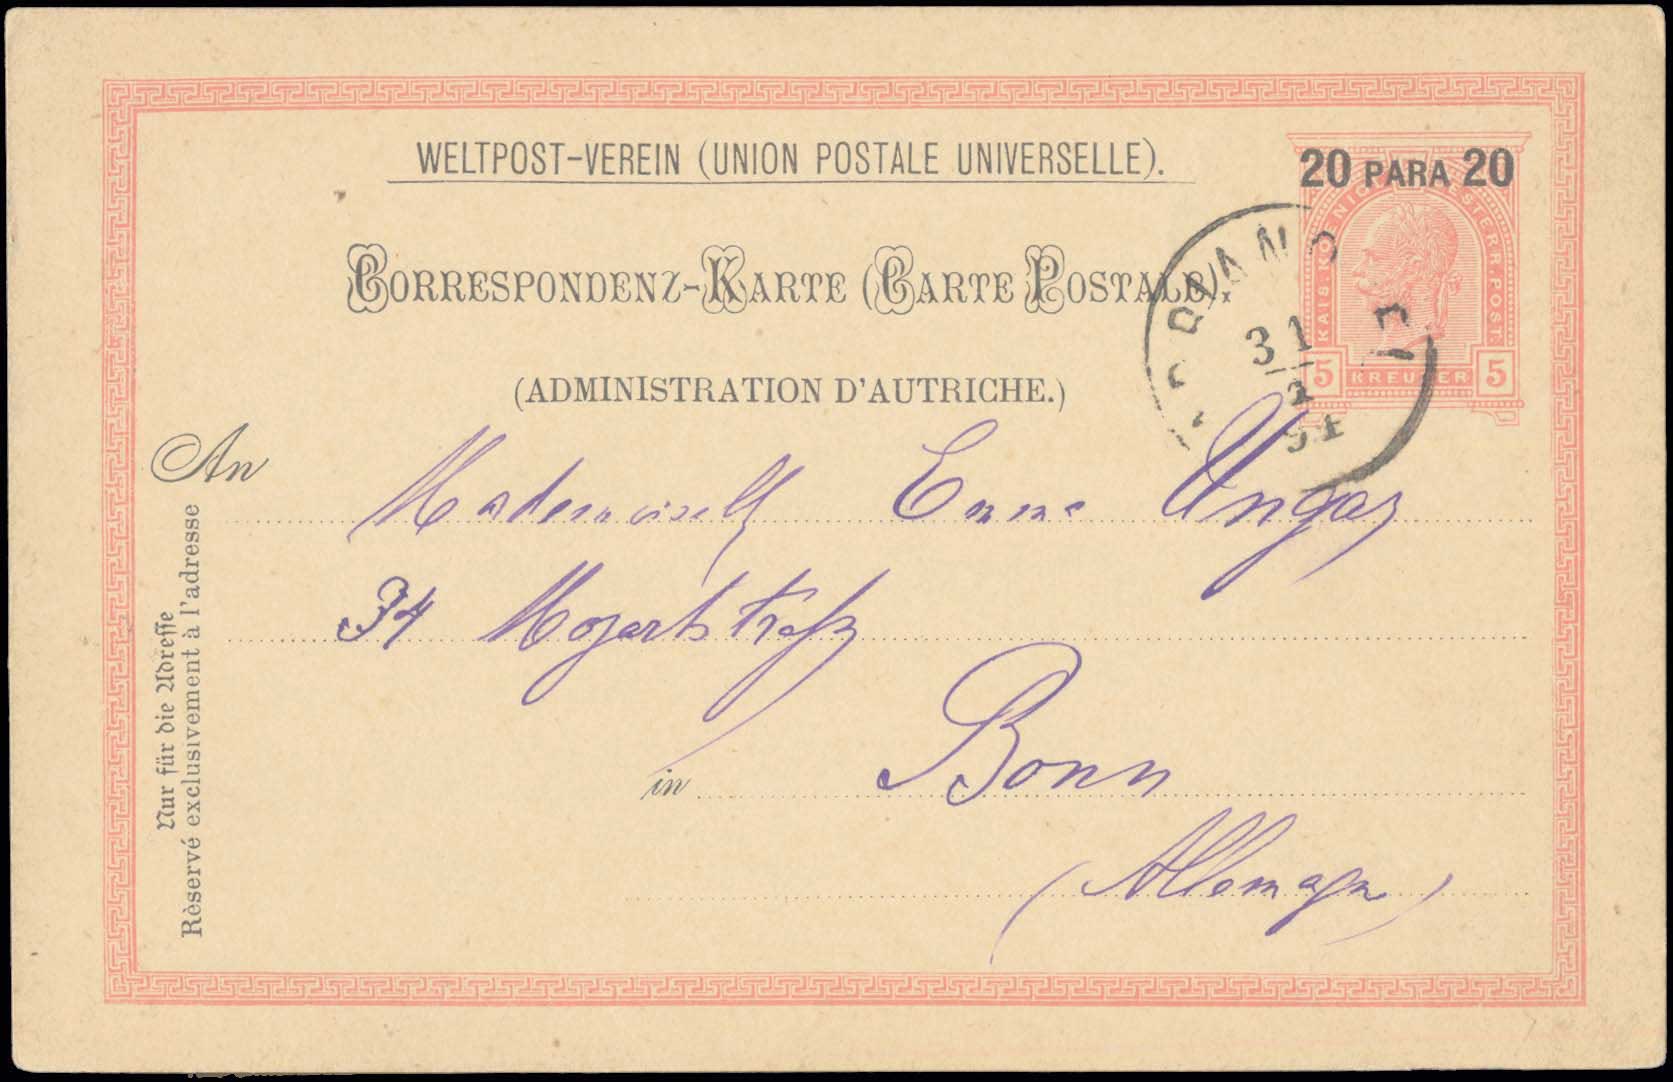 WELTPOST-VEREIN (UNION POSTALE UNIVERSELLE).
20 PARA 20
CORRESPONDENZ-KARTE (CARTE POSTALE).
KAIS. KÖNIGL. ÖSTERR. POST
5 KREUZER 5
31
(ADMINISTRATION D'AUTRICHE.)
An
Mademoiselle Emma Ungar
34 Mozartstraße
in Bonn
(Allemagne)
Nur für die Adresse
Rèservé exclusivement à l'adresse